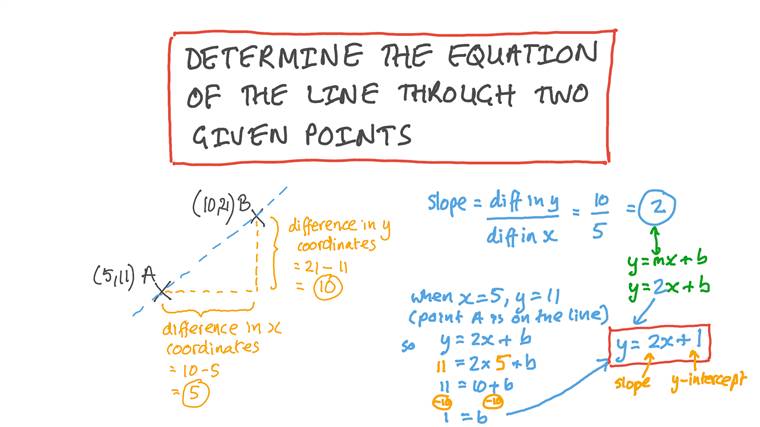 DETERMINE THE EQUATION
OF THE LINE THROUGH TWO
GIVEN POINTS
(10,21) B
(5,11) A
difference in y
coordinates
= 21 - 11
= 10
difference in x
coordinates
= 10 - 5
= 5
slope = diff in y / diff in x = 10/5 = 2
y = mx + b
y = 2x + b
when x = 5, y = 11
(point A is on the line)
so y = 2x + b
11 = 2 x 5 + b
11 = 10 + b
-10 -10
1 = b
y = 2x + 1
slope y-intercept